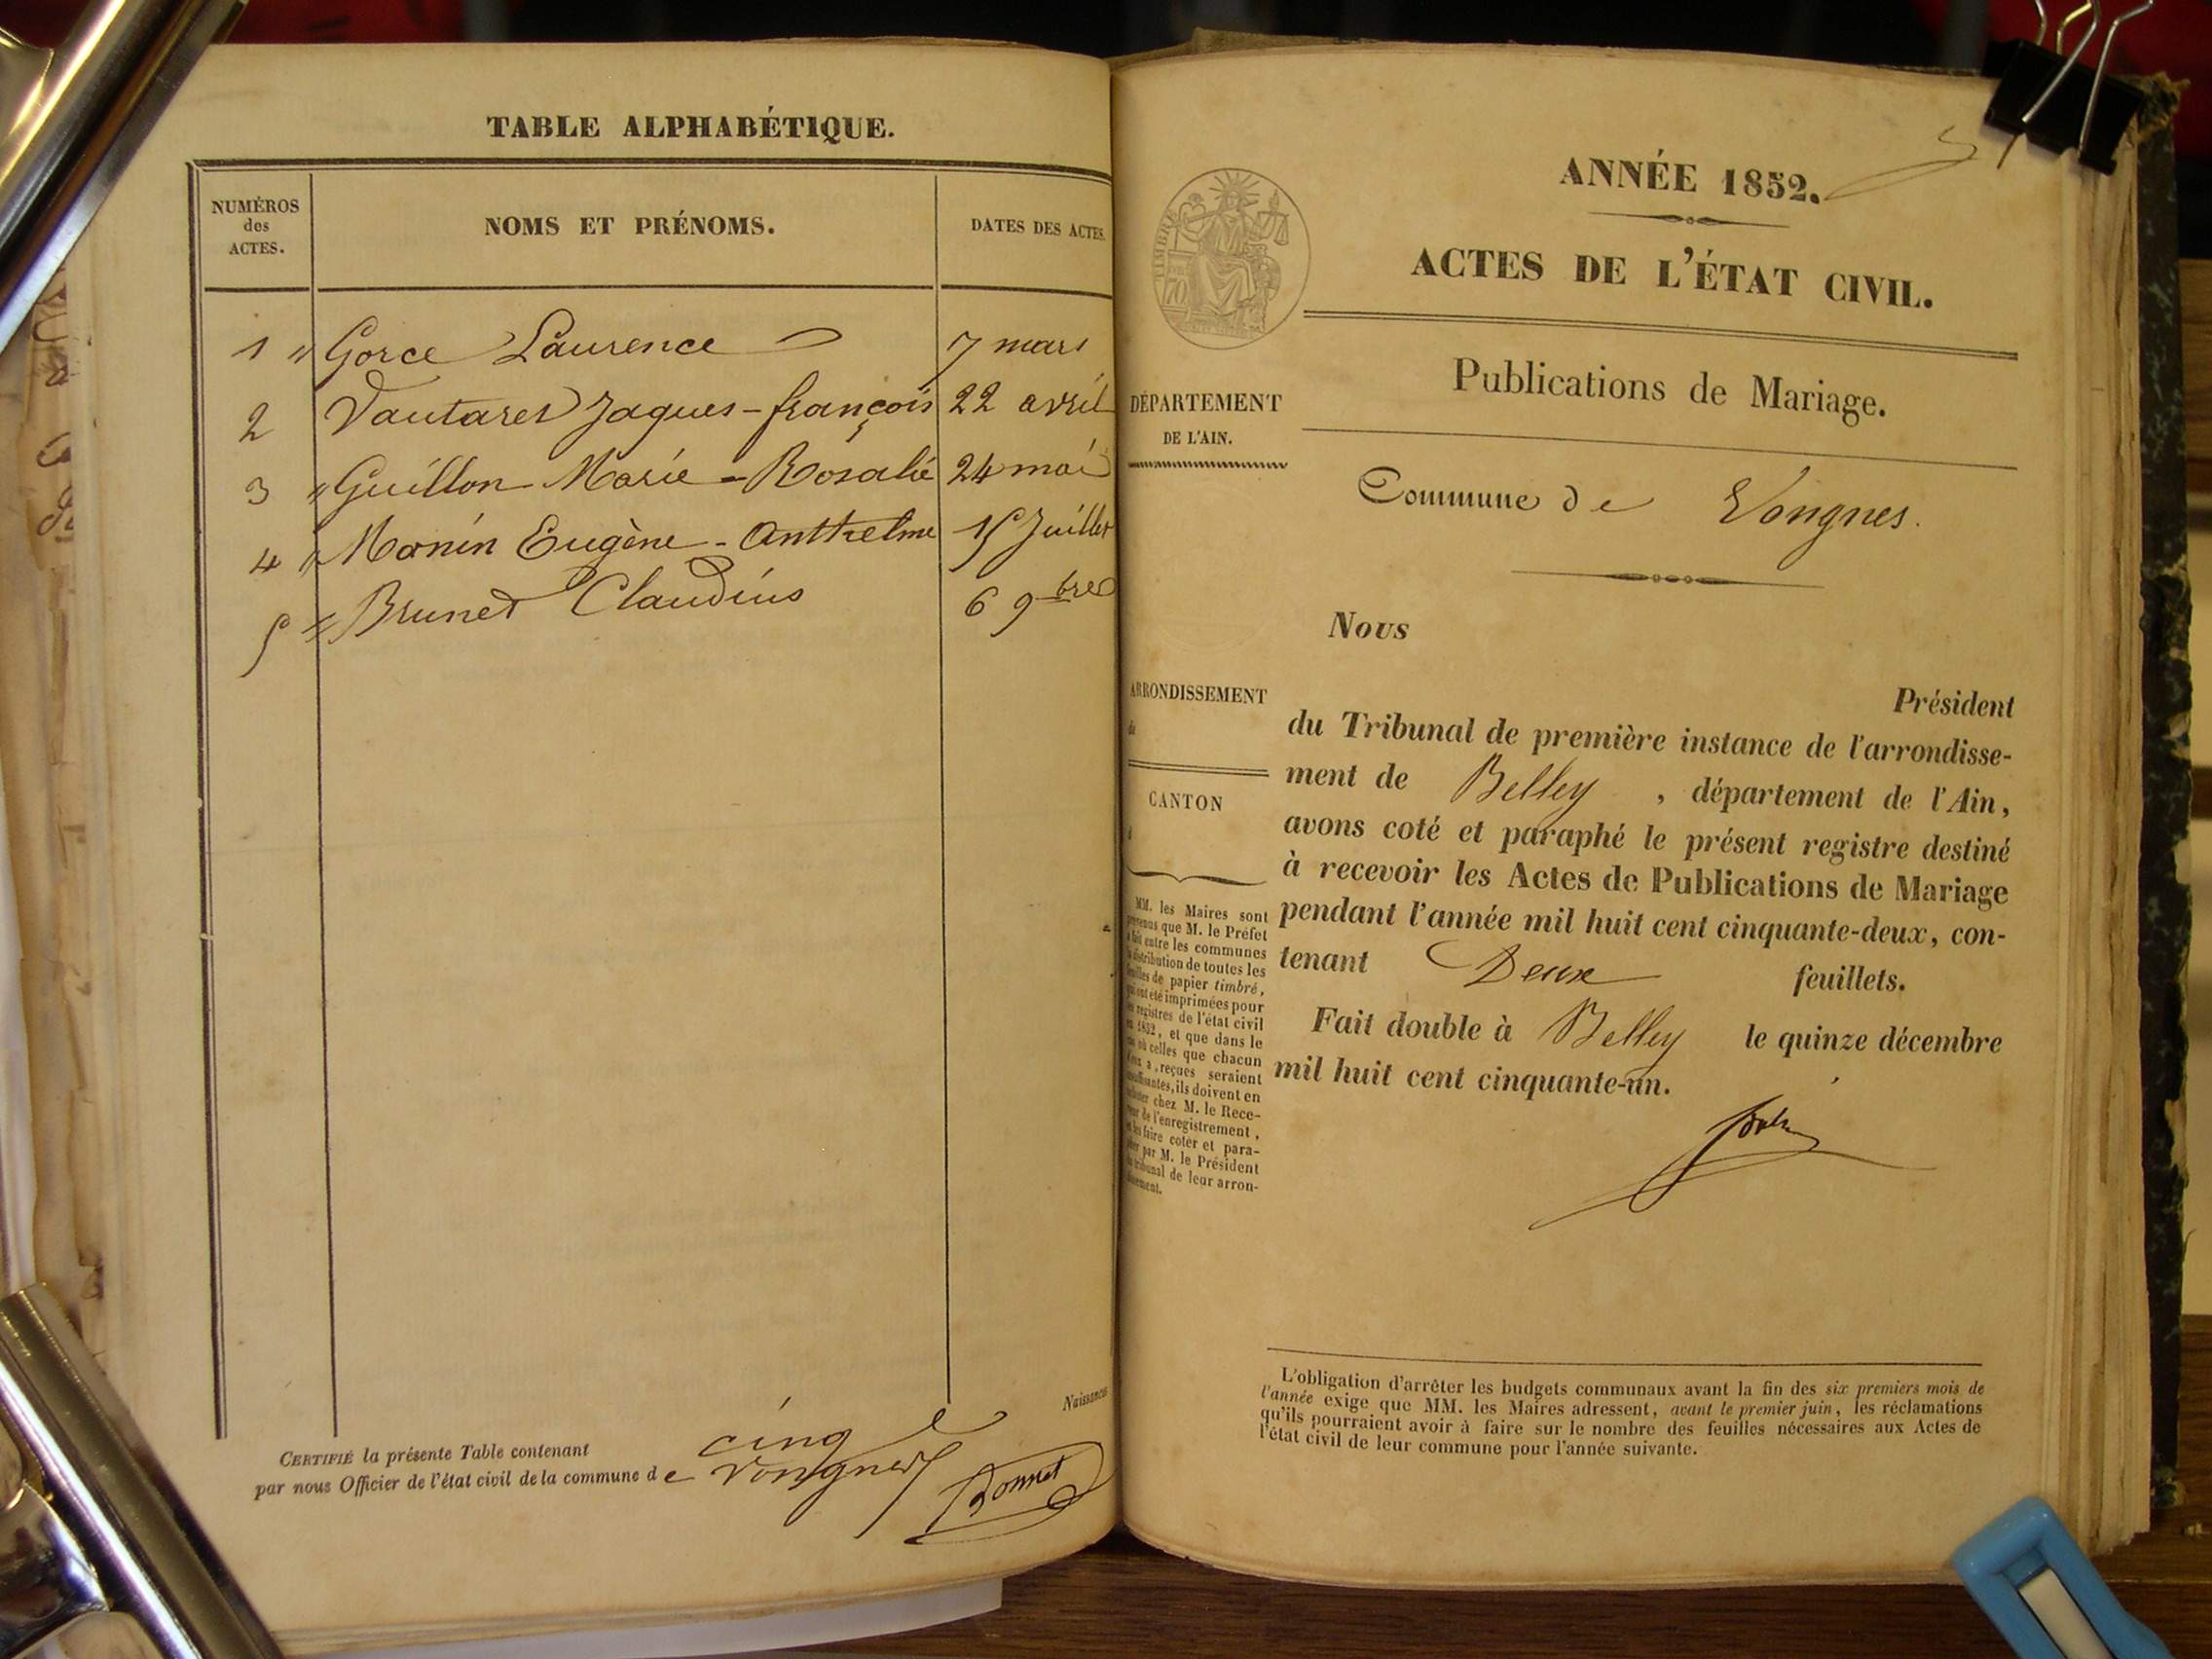 TABLE ALPHABÉTIQUE.
NUMÉROS
des
ACTES.
NOMS ET PRÉNOMS.
DATES DES ACTES.
1 " Gorce Laurence 7 mars
2 Vautaret Jaques-françois 22 avril
3 " Guillon Marie-Rosalie 24 mai
4 " Monin Eugène-Anthelme 15 Juillet
5 = Brunet Claudius 6 9bre
Naissances
CERTIFIÉ la présente Table contenant cinq
par nous Officier de l'état civil de la commune de Vongnes
Bonnet
ANNÉE 1852.
ACTES DE L'ÉTAT CIVIL.
TIMBRE
70
Publications de Mariage.
DÉPARTEMENT
DE L'AIN.
Commune de Vongnes.
Nous
Président
ARRONDISSEMENT
de
CANTON
d
du Tribunal de première instance de l'arrondisse-
ment de Belley, département de l'Ain,
avons coté et paraphé le présent registre destiné
à recevoir les Actes de Publications de Mariage
pendant l'année mil huit cent cinquante-deux, con-
tenant Deux feuillets.
Fait double à Belley le quinze décembre
mil huit cent cinquante-un.
MM. les Maires sont
prévenus que M. le Préfet
a fait entre les communes
la distribution de toutes les
feuilles de papier timbré,
qui ont été imprimées pour
les registres de l'état civil
en 1852, et que dans le
cas où celles que chacun
d'eux a reçues seraient
insuffisantes, ils doivent en
acheter chez M. le Rece-
veur de l'enregistrement,
et les faire coter et para-
pher par M. le Président
du tribunal de leur arron-
dissement.
L'obligation d'arrêter les budgets communaux avant la fin des six premiers mois de
l'année exige que MM. les Maires adressent, avant le premier juin, les réclamations
qu'ils pourraient avoir à faire sur le nombre des feuilles nécessaires aux Actes de
l'état civil de leur commune pour l'année suivante.